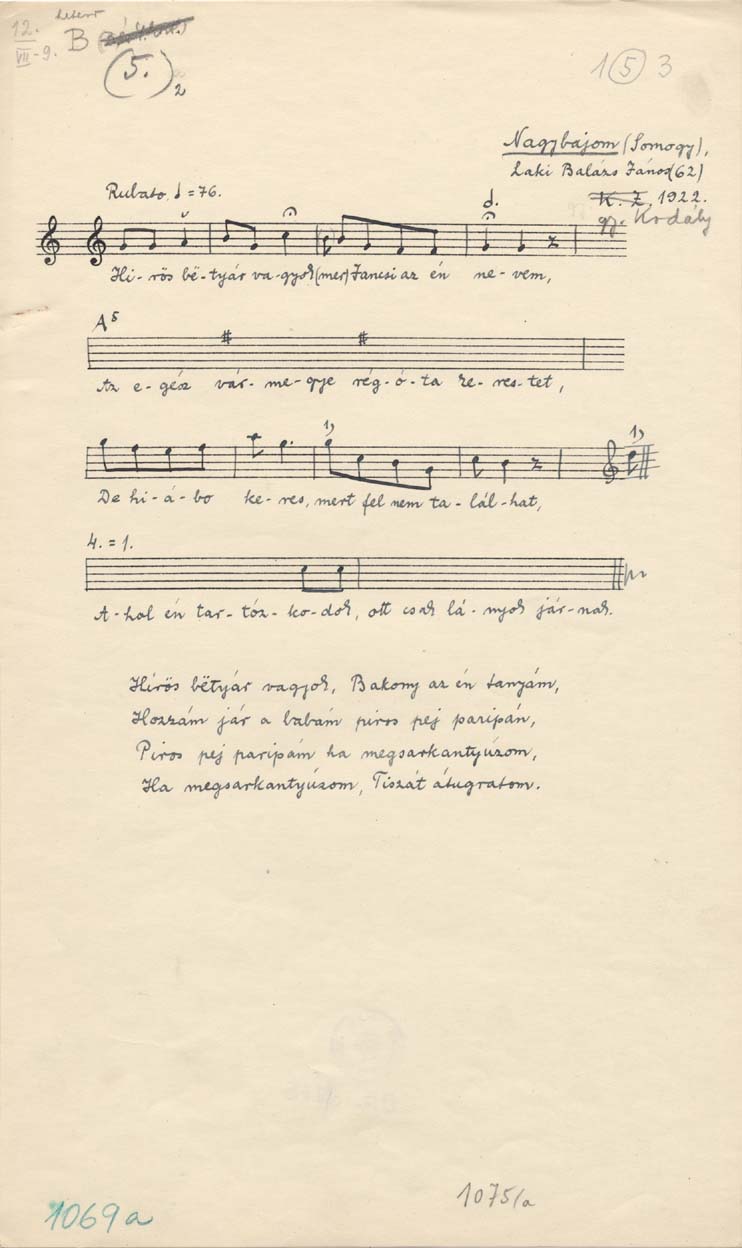 12.
VII-9.
B
(5.)
2
1 5 3
Nagybajom (Somogy),
Laki Balázs János (62)
K. Z. 1922.
gy. Kodály
Rubato, ♩ = 76.
d.
Hi-rös bë-tyár va-gyok (mer) Jancsi az én ne-vem,
A5
Az e-gész vár-me-gye rég-ó-ta ke-res-tet,
1)
1)
De hi-á-bo ke-res, mert fel nem ta-lál-hat,
4. = 1.
A-hol én tar-tóz-ko-dok, ott csak lá-nyok jár-nak.
Hírös bëtyár vagyok, Bakony az én tanyám,
Hozzám jár a babám piros pej paripán,
Piros pej paripám ha megsarkantyúzom,
Ha megsarkantyúzom, Tiszát átugratom.
1069a
1075/a